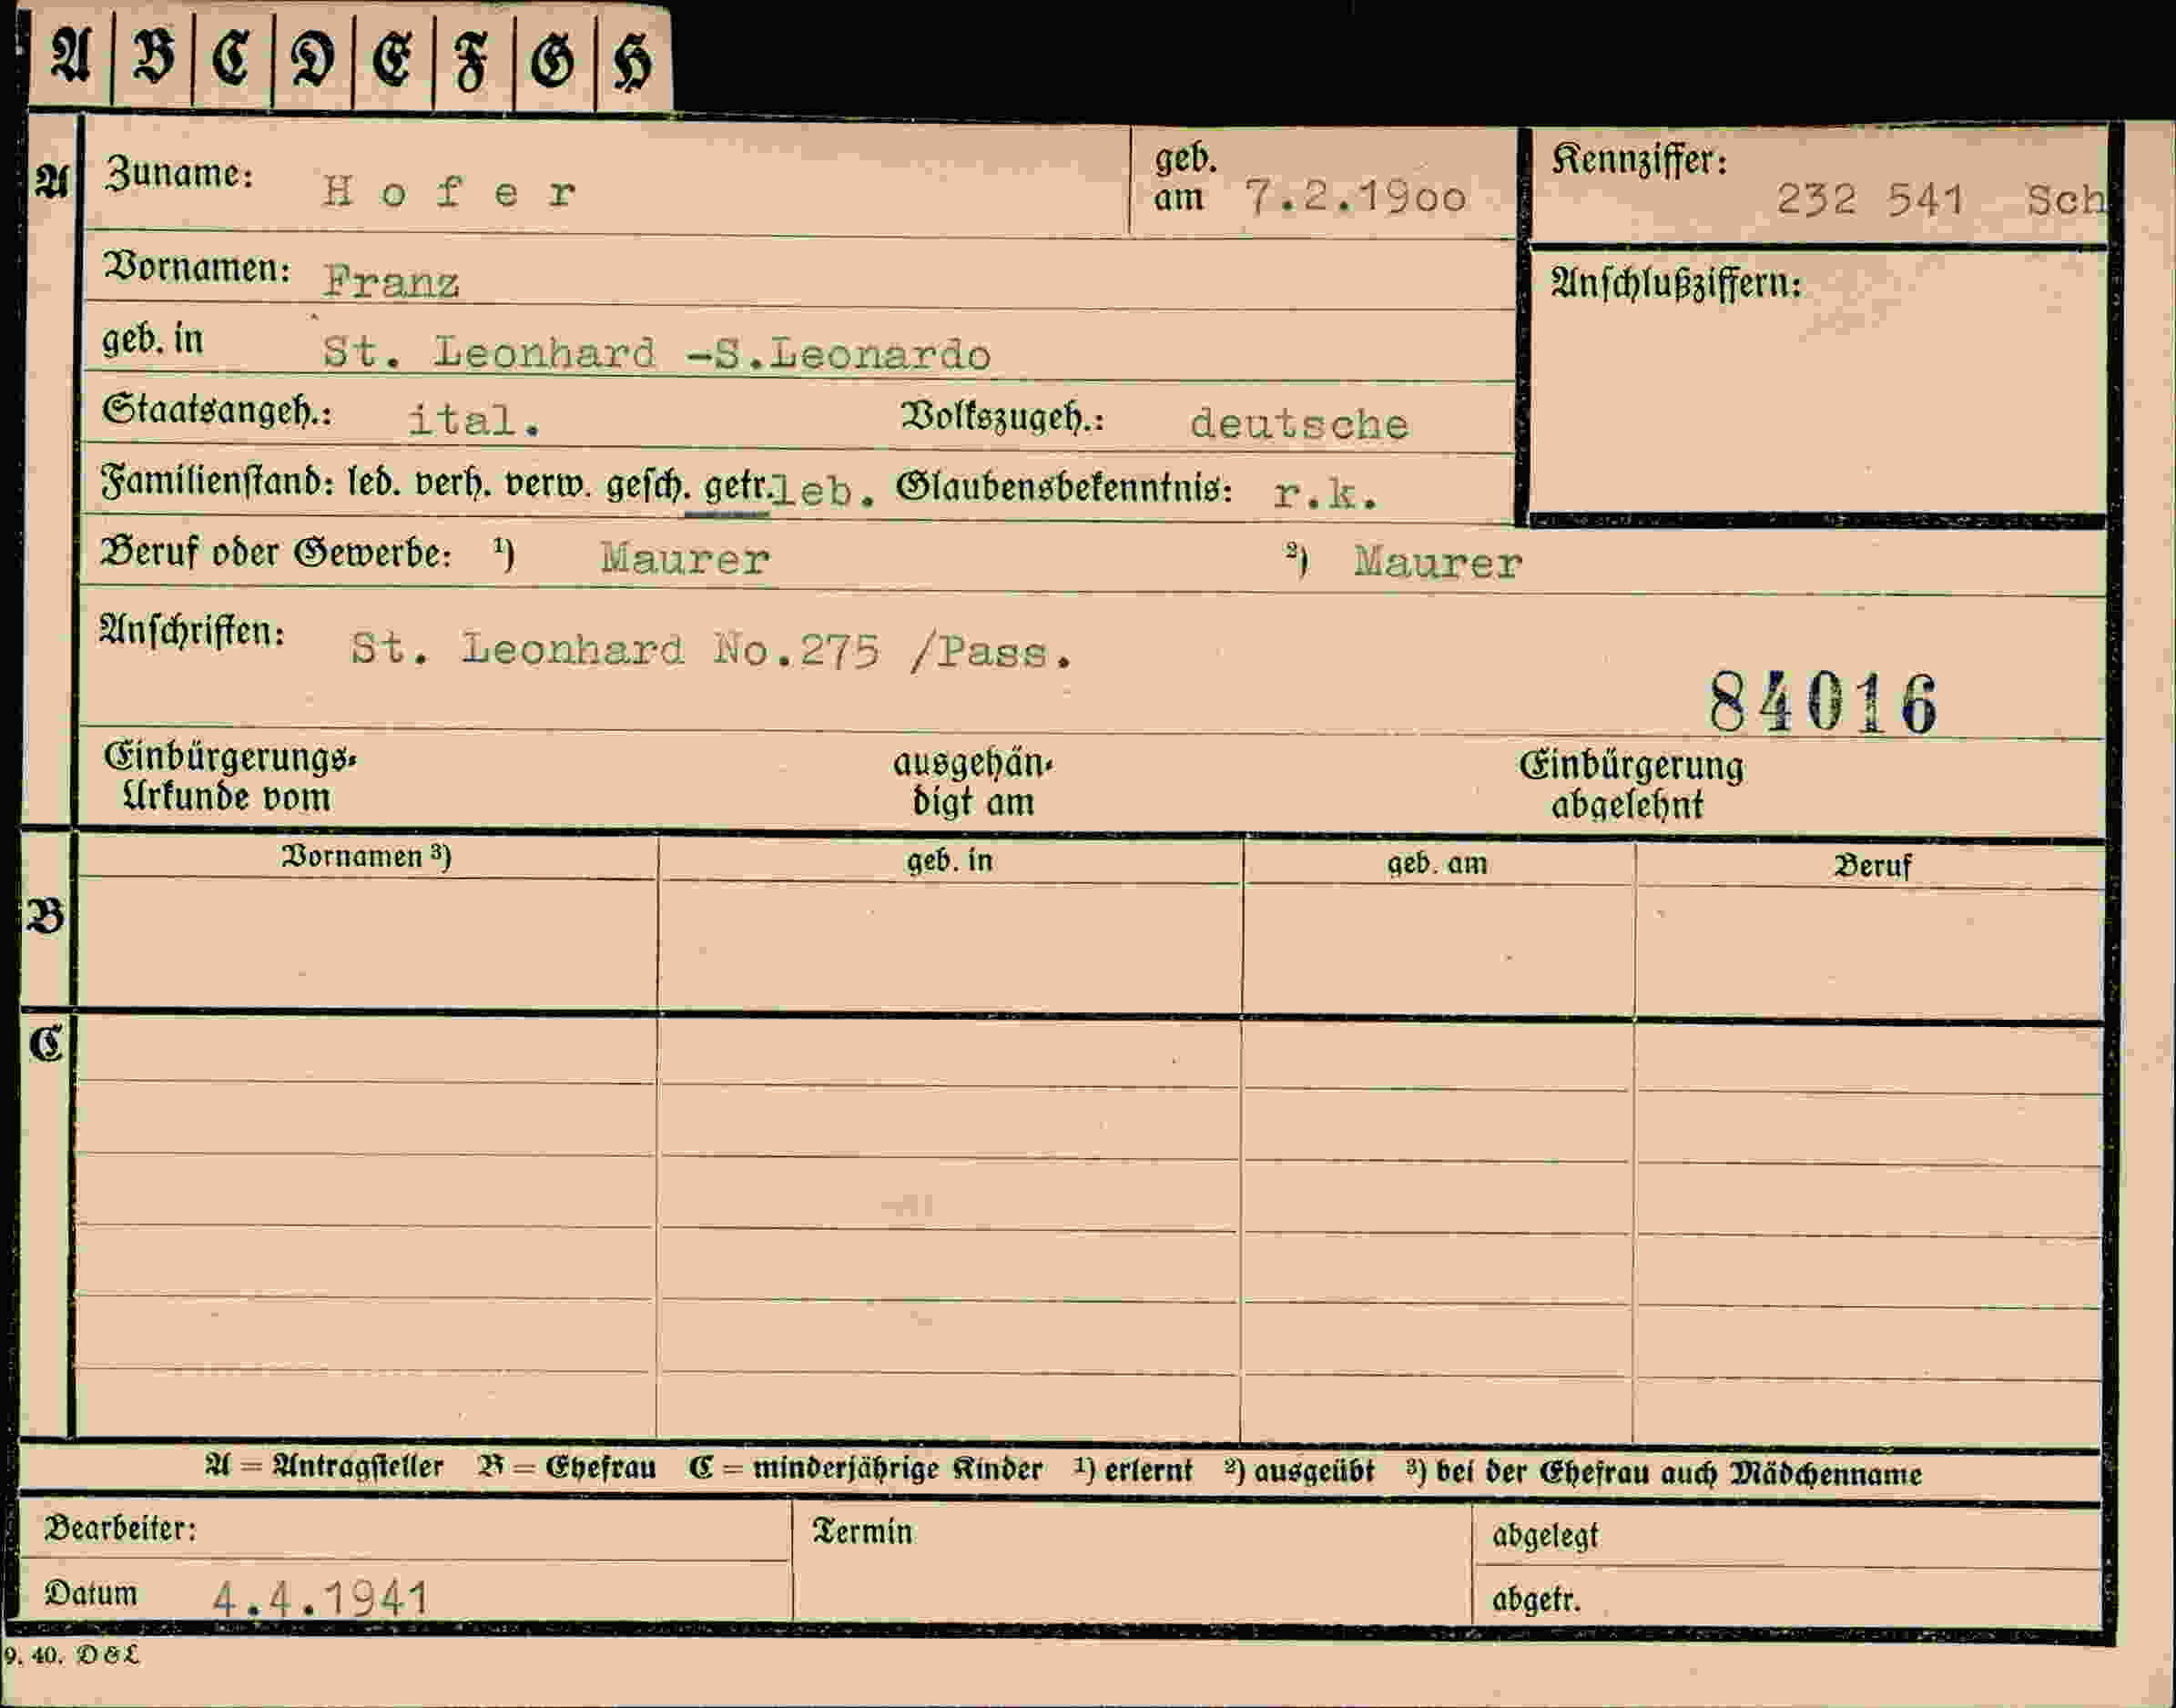 A B C D E F G H
A Zuname: H o f e r geb. am 7.2.19oo Kennziffer: 232 541 Sch
Vornamen: Franz Anschlußziffern:
geb. in St. Leonhard -S.Leonardo
Staatsangeh.: ital. Volkszugeh.: deutsche
Familienstand: led. verh. verw. gesch. getr.leb. Glaubensbekenntnis: r.k.
Beruf oder Gewerbe: ¹) Maurer ²) Maurer
Anschriften: St. Leonhard No.275 /Pass.
84016
Einbürgerungs- ausgehän- Einbürgerung
Urkunde vom digt am abgelehnt
Vornamen ³) geb. in geb. am Beruf
B
C
A = Antragsteller B = Ehefrau C = minderjährige Kinder ¹) erlernt ²) ausgeübt ³) bei der Ehefrau auch Mädchenname
Bearbeiter: Termin abgelegt
Datum 4.4.1941 abgetr.
9. 40. D&L